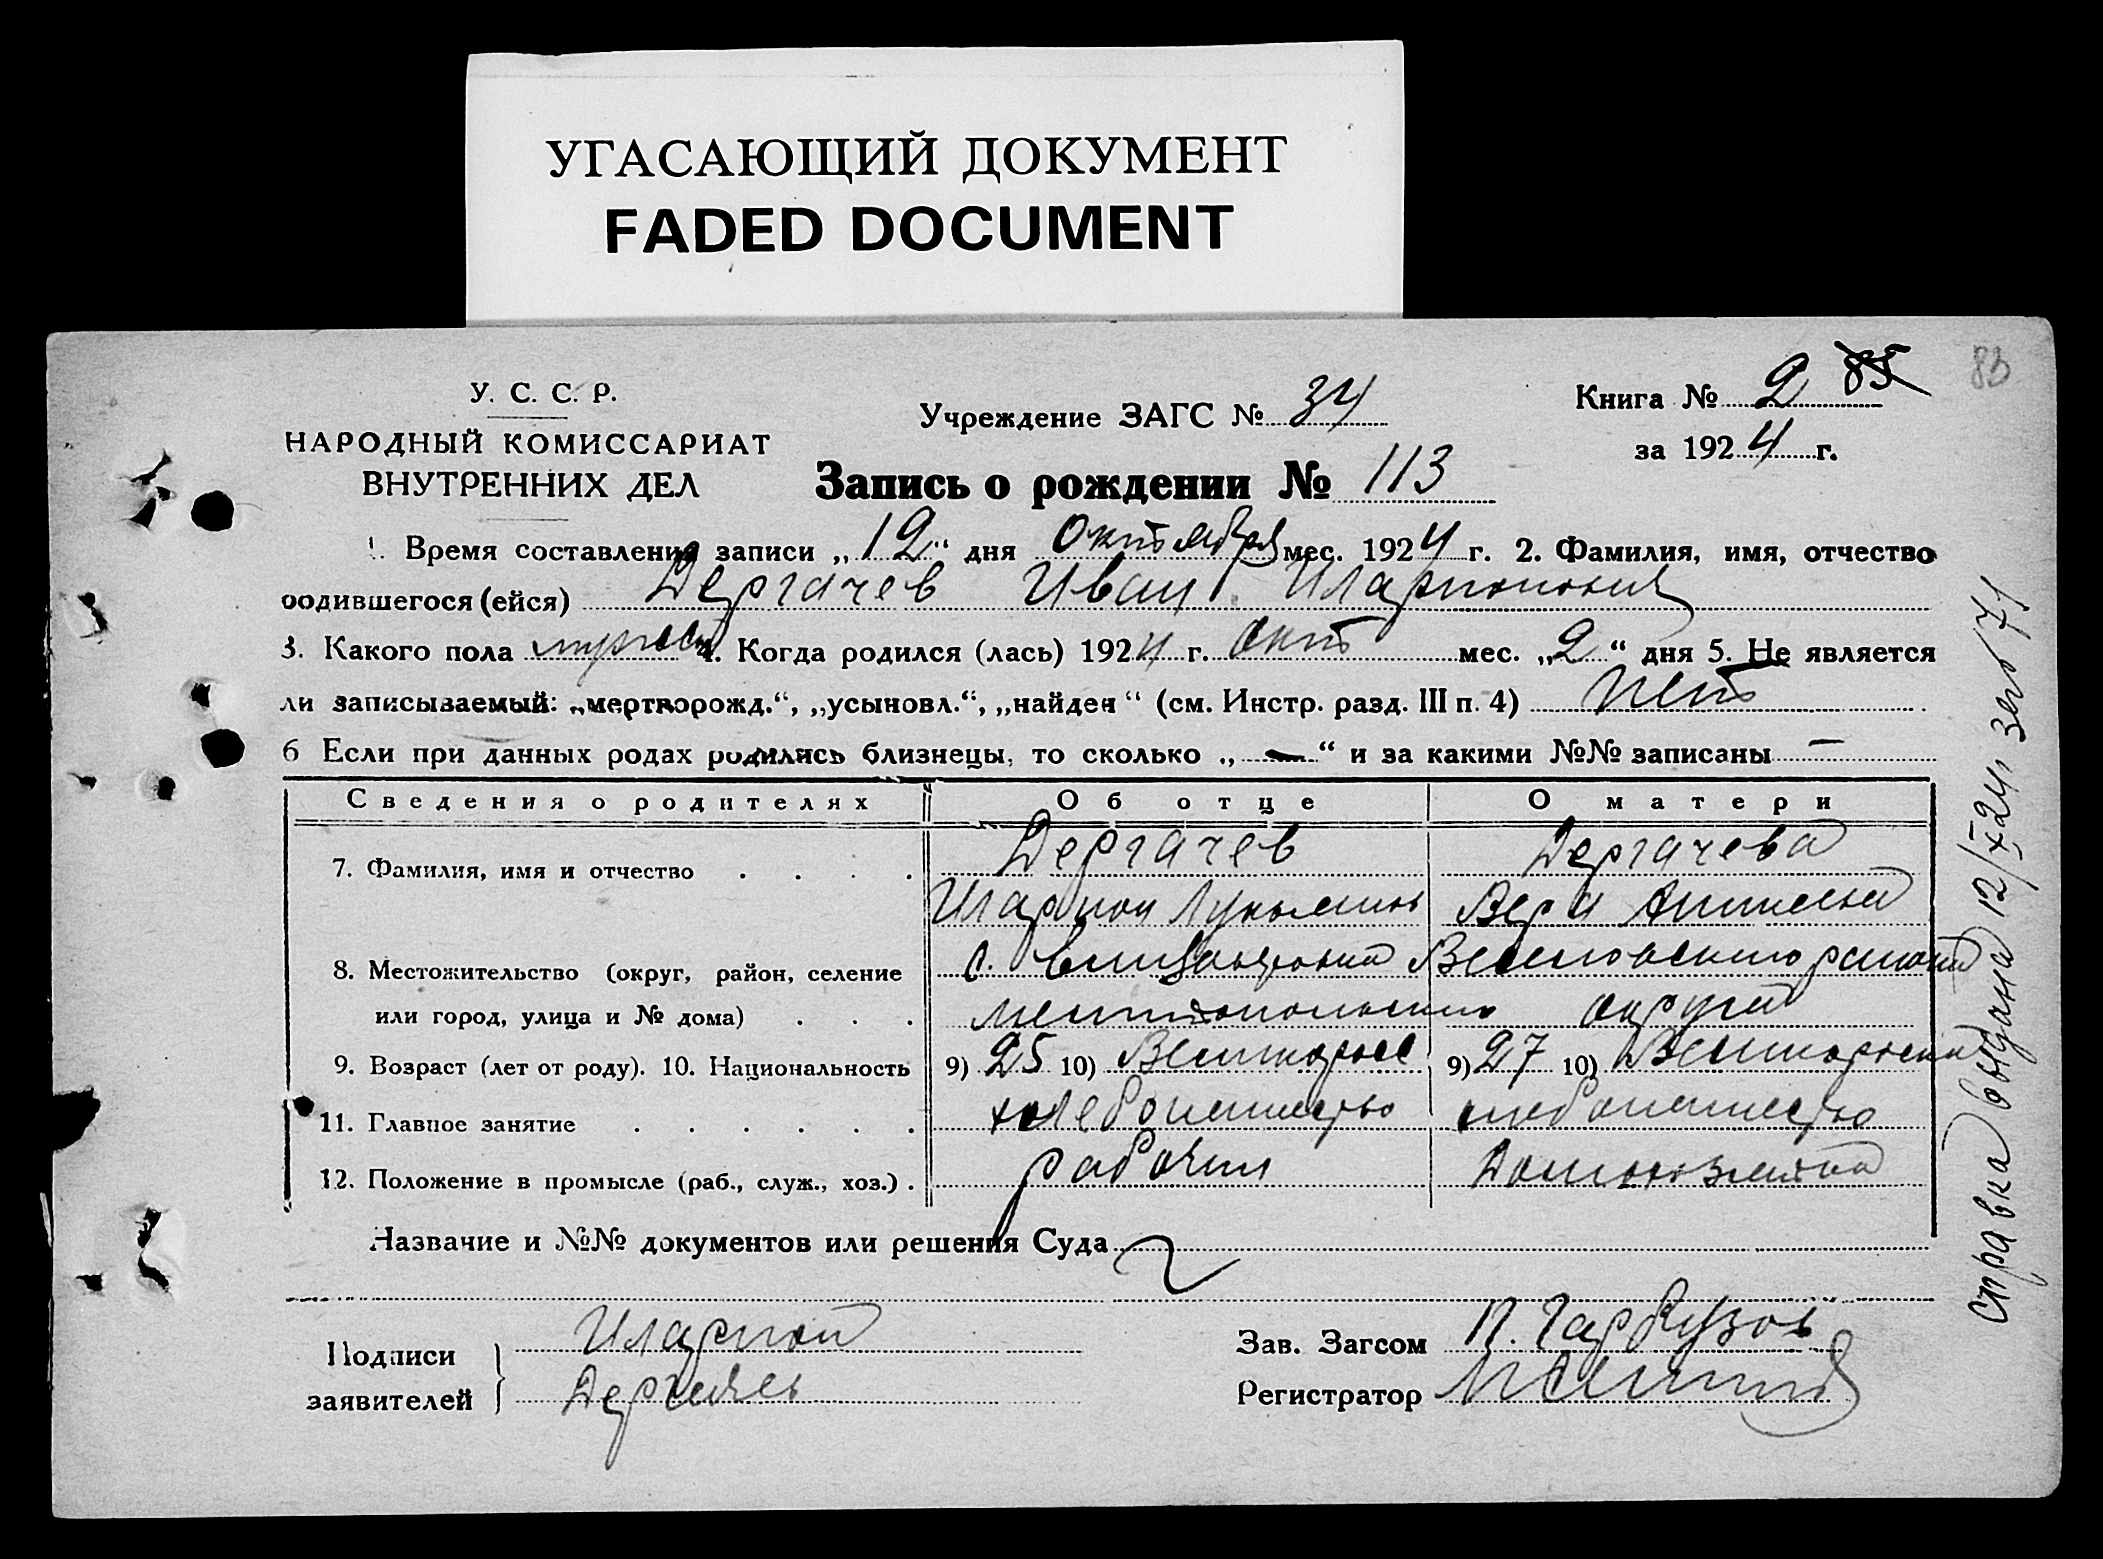 УГАСАЮЩИЙ ДОКУМЕНТ
FADED DOCUMENT
У. С. С. Р.
НАРОДНЫЙ КОМИССАРИАТ
ВНУТРЕННИХ ДЕЛ
Учреждение ЗАГС № 34
Книга № 2 85 83
за 1924 г.
Запись о рождении № 113
1. Время составления записи „12“ дня Октября мес. 1924 г. 2. Фамилия, имя, отчество
родившегося (ейся) Дергачев Иван Иларионович
3. Какого пола 4. Когда родился (лась) 1924 г. Окт мес. „2“ дня 5. Не является
ли записываемый: „мертворожд.“, „усыновл.“, „найден“ (см. Инстр. разд. III п. 4) Нет
6 Если при данных родах родились близнецы, то сколько „—“ и за какими №№ записаны —
Сведения о родителях Об отце О матери
7. Фамилия, имя и отчество Дергачев Дергачева
Иларион Вера
8. Местожительство (округ, район, селение с. района
или город, улица и № дома) округа
9. Возраст (лет от роду). 10. Национальность 9) 25 10) 9) 27 10)
11. Главное занятие
12. Положение в промысле (раб., служ., хоз.) рабочий Домохозяйка
Название и №№ документов или решения Суда
Подписи заявителей
Иларион
Дергачев
Зав. Загсом П. Гарбузов
Регистратор
Справка выдана 12/X 24 г. за № 71